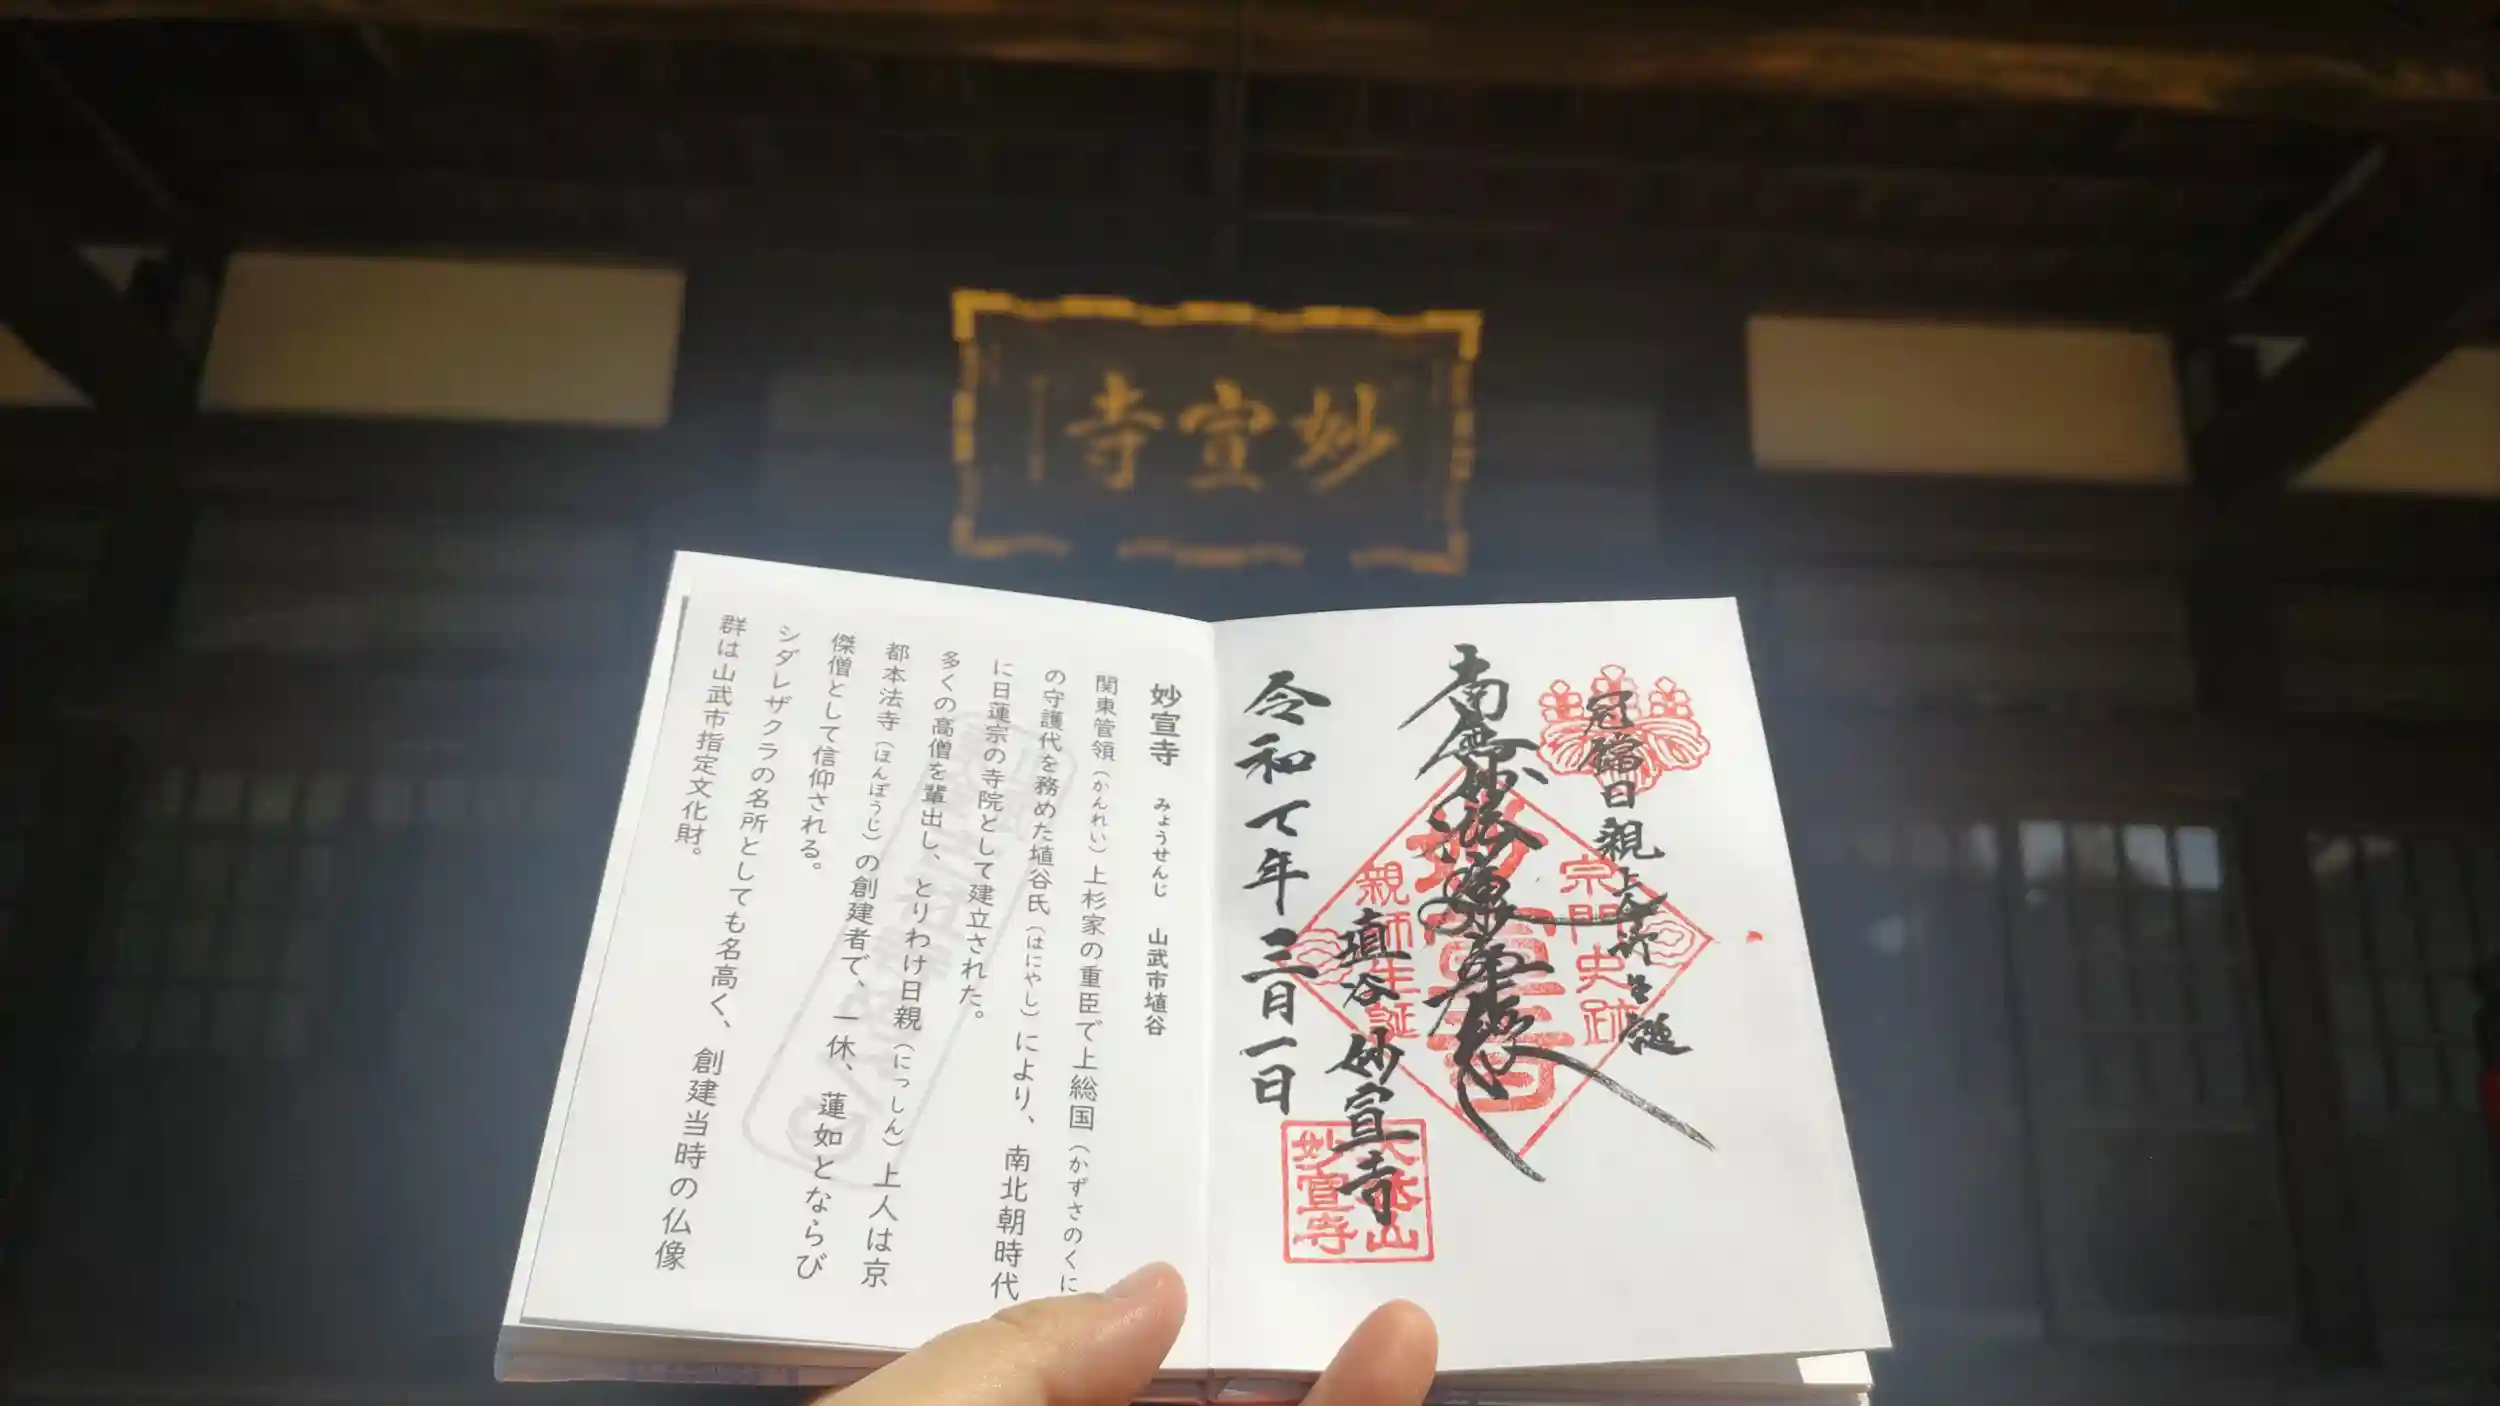 妙宣寺
南無妙法蓮華経
冠鐺日親上人
埴谷 妙宣寺
令和七年三月一日
宗門史跡
親師生誕
妙宣寺
妙宣寺
妙宣寺 みょうせんじ 山武市埴谷
関東管領(かんれい)上杉家の重臣で上総国(かずさのくに
の守護代を務めた埴谷氏(はにやし)により、南北朝時代
に日蓮宗の寺院として建立された。
多くの高僧を輩出し、とりわけ日親(にっしん)上人は京
都本法寺(ほんぽうじ)の創建者で、一休、蓮如とならび
傑僧として信仰される。
シダレザクラの名所としても名高く、創建当時の仏像
群は山武市指定文化財。